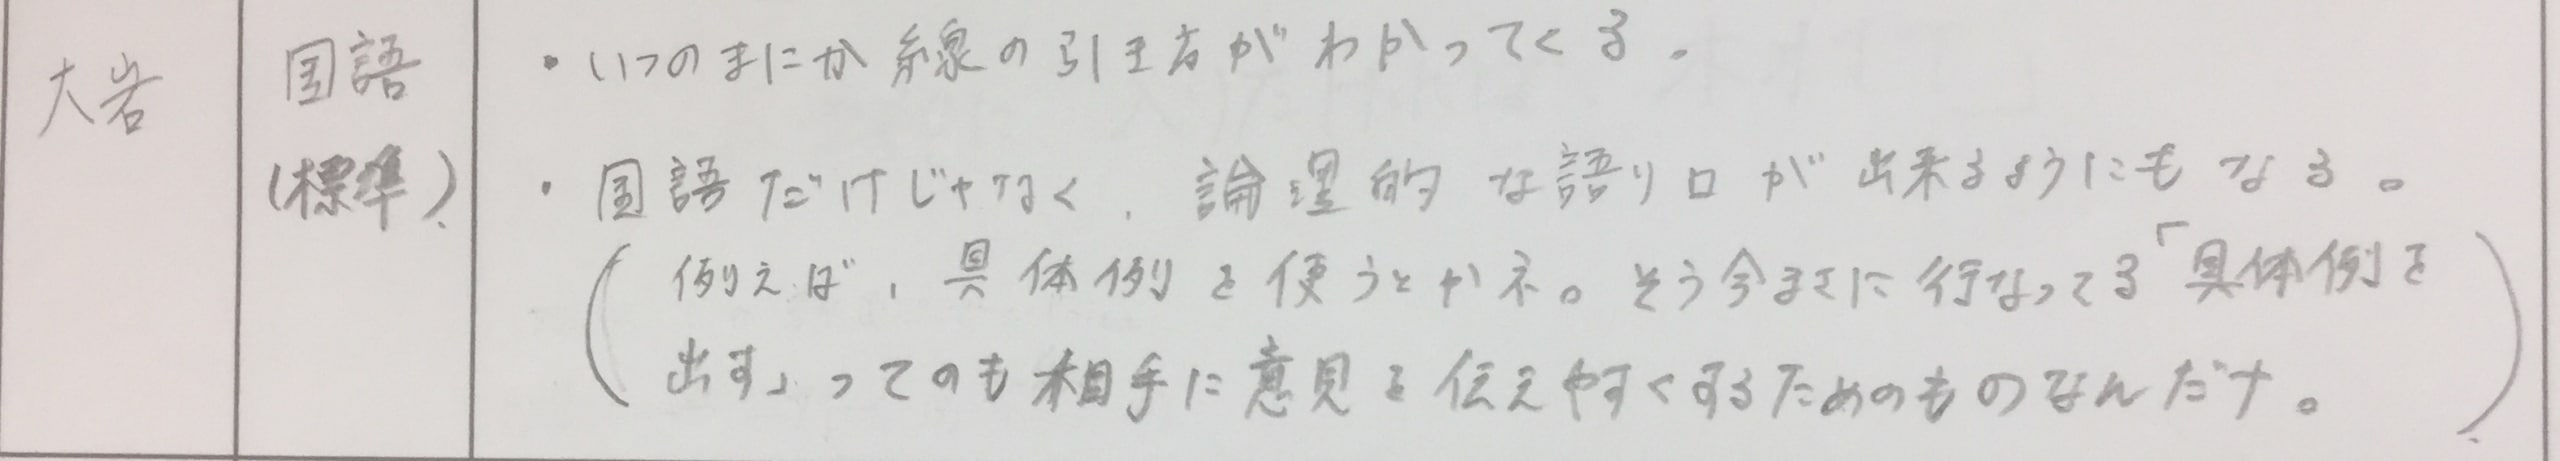 大岩
国語
(標準)
・いつのまにか線の引き方がわかってくる。
・国語だけじゃなく、論理的な語り口が出来るようにもなる。
(例えば、具体例を使うとかネ。そう今まさに行なってる「具体例を
出す」ってのも相手に意見を伝えやすくするためのものなんだナ。)